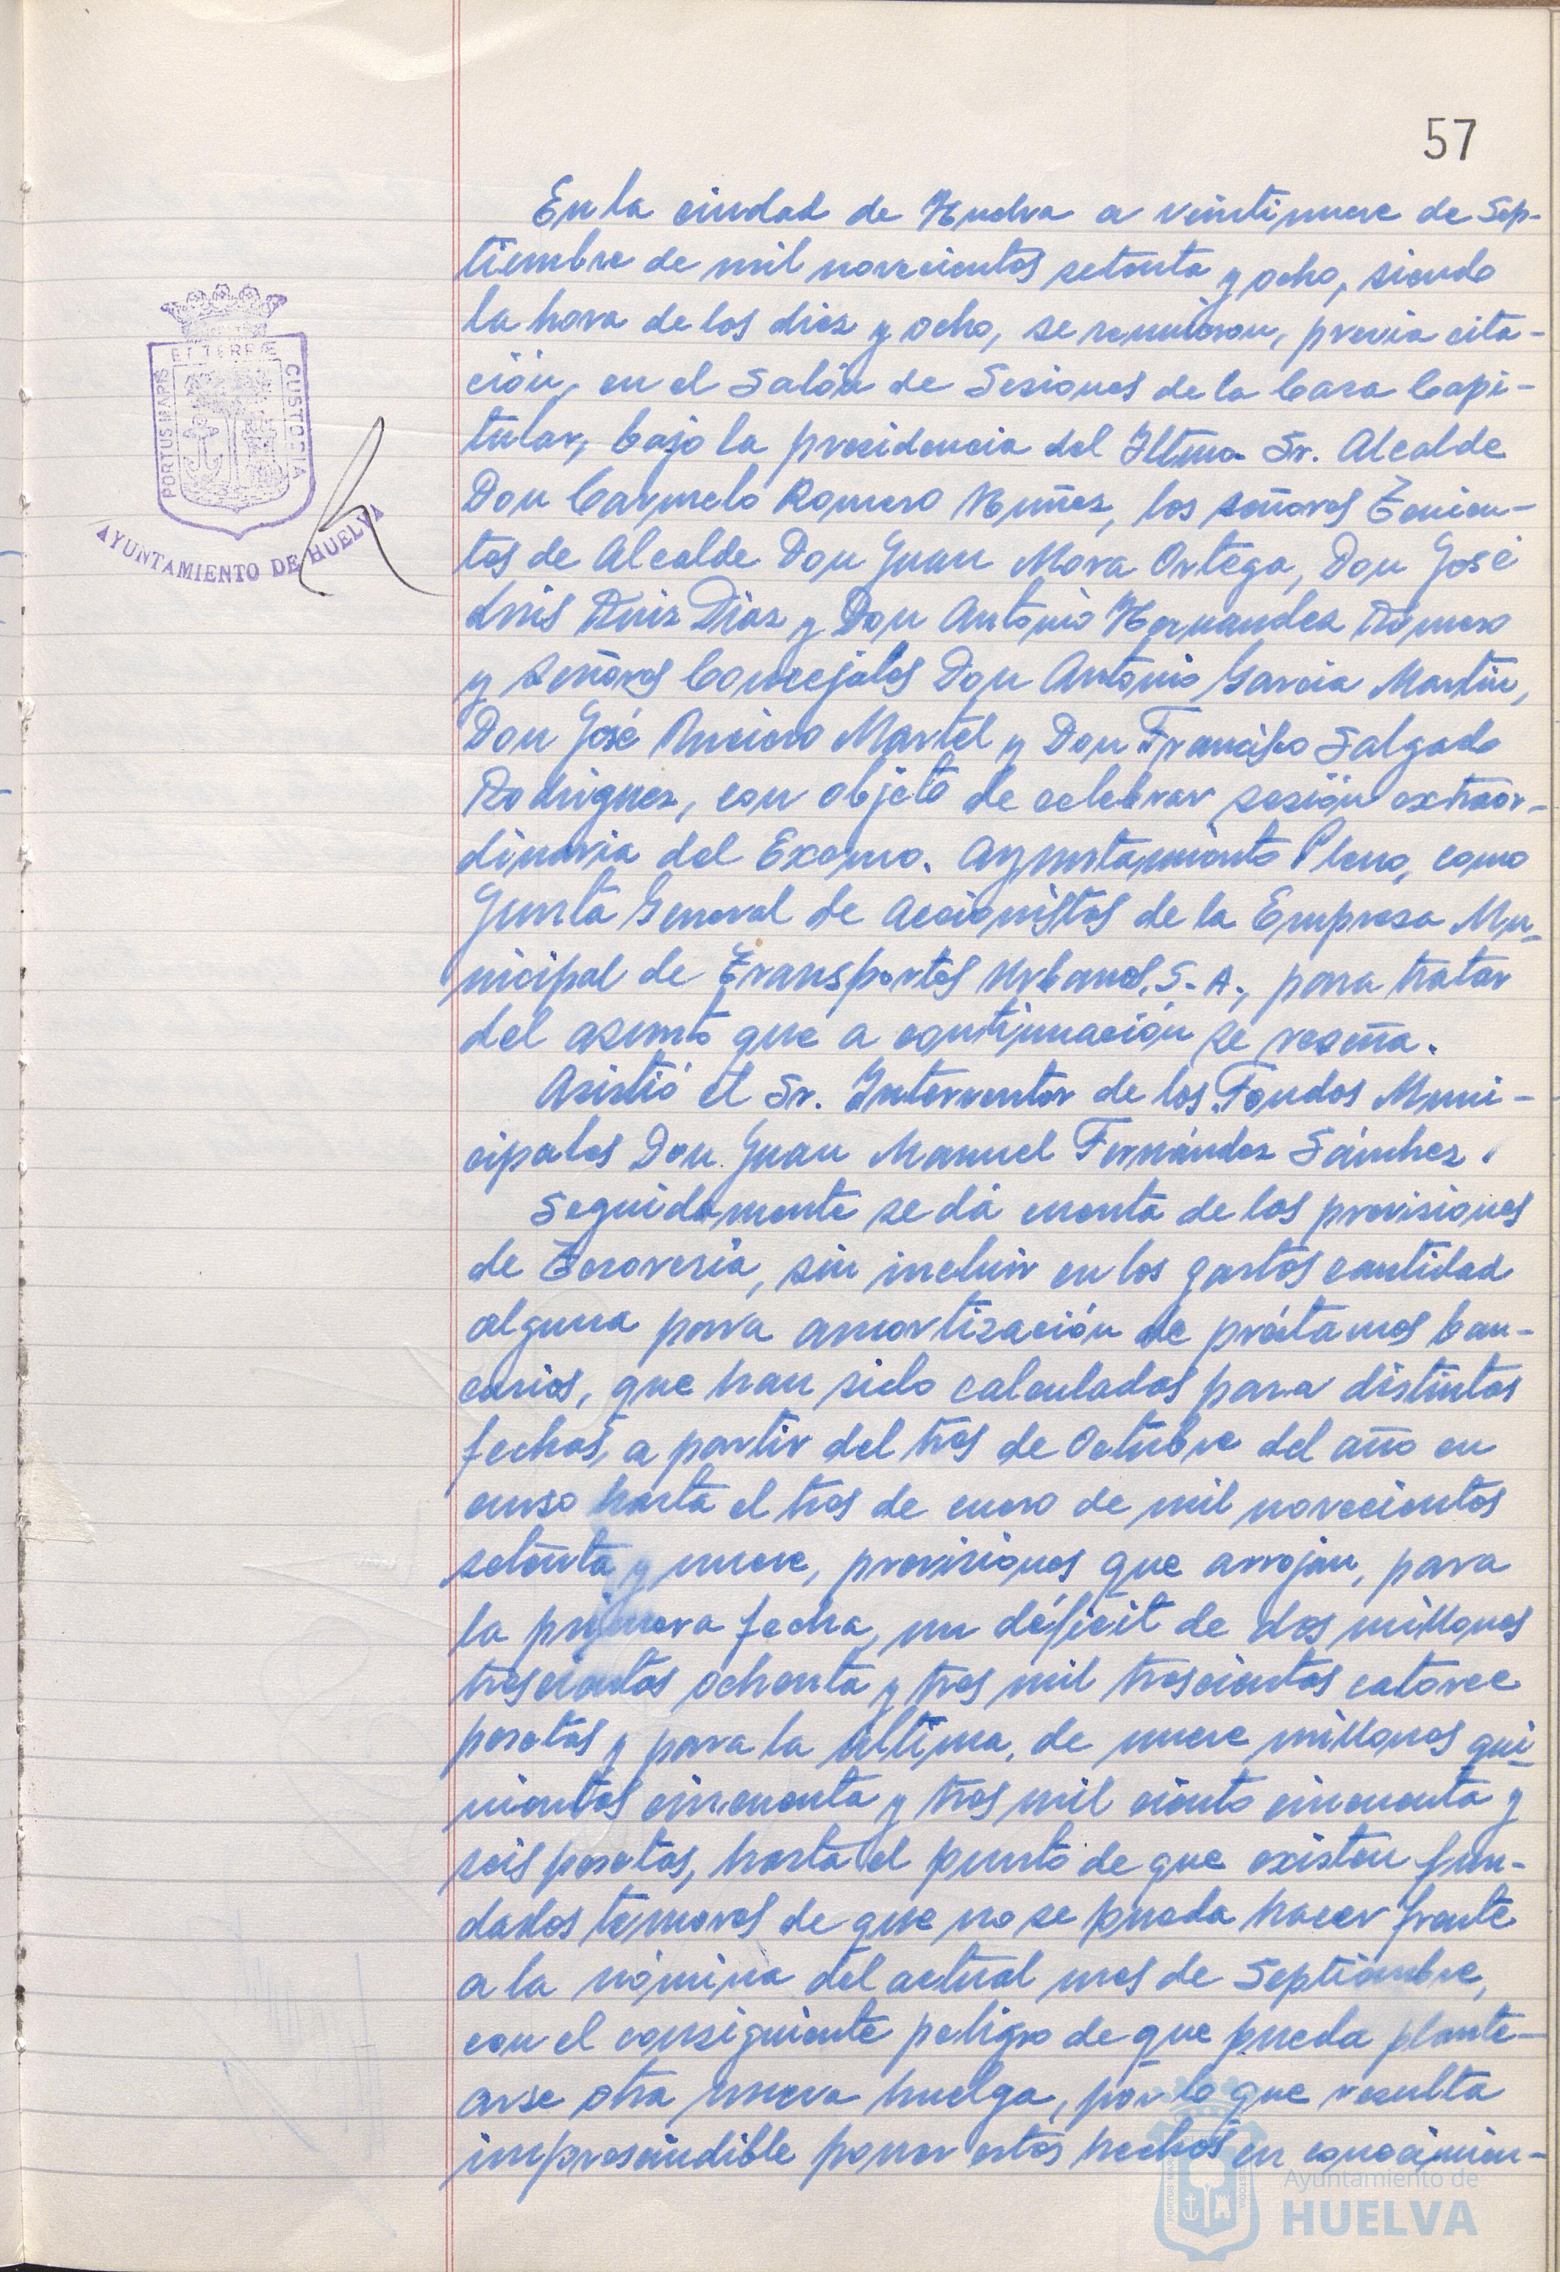 57
En la ciudad de Huelva a veintinueve de Sep-
tiembre de mil novecientos setenta y ocho, siendo
la hora de las diez y ocho, se reunieron, previa cita-
ción, en el Salón de Sesiones de la Casa Capi-
tular, bajo la presidencia del Iltmo. Sr. Alcalde
Don Carmelo Romero Núñez, los señores Tenien-
tes de Alcalde Don Juan Mora Ortega, Don José
Luis Ruiz Díaz y Don Antonio Hernández Romero
y señores Concejales Don Antonio García Martín,
Don José Martel y Don Francisco Salgado
Rodríguez, con objeto de celebrar sesión extraor-
dinaria del Excmo. Ayuntamiento Pleno, como
Junta General de Accionistas de la Empresa Mu-
nicipal de Transportes Urbanos, S.A., para tratar
del asunto que a continuación se reseña.
Asistió el Sr. Interventor de los Fondos Muni-
cipales Don Juan Manuel Fernández Sánchez.
Seguidamente se dá cuenta de las previsiones
de Tesorería, sin incluir en los gastos cantidad
alguna para amortización de préstamos ban-
carios, que han sido calculadas para distintas
fechas, a partir del tres de Octubre del año en
curso hasta el tres de enero de mil novecientos
setenta y nueve, previsiones que arrojan, para
la primera fecha, un déficit de dos millones
trescientas ochenta y tres mil trescientas catorce
pesetas y para la última, de nueve millones qui-
nientas cincuenta y tres mil ciento cincuenta y
seis pesetas, hasta el punto de que existen fun-
dados temores de que no se pueda hacer frente
a la nómina del actual mes de Septiembre,
con el consiguiente peligro de que pueda plante-
arse otra nueva huelga, por lo que resulta
imprescindible poner estos hechos en conocimien-
PORTUS MARIS ET TERRE CUSTODIA
AYUNTAMIENTO DE HUELVA
Ayuntamiento de
HUELVA